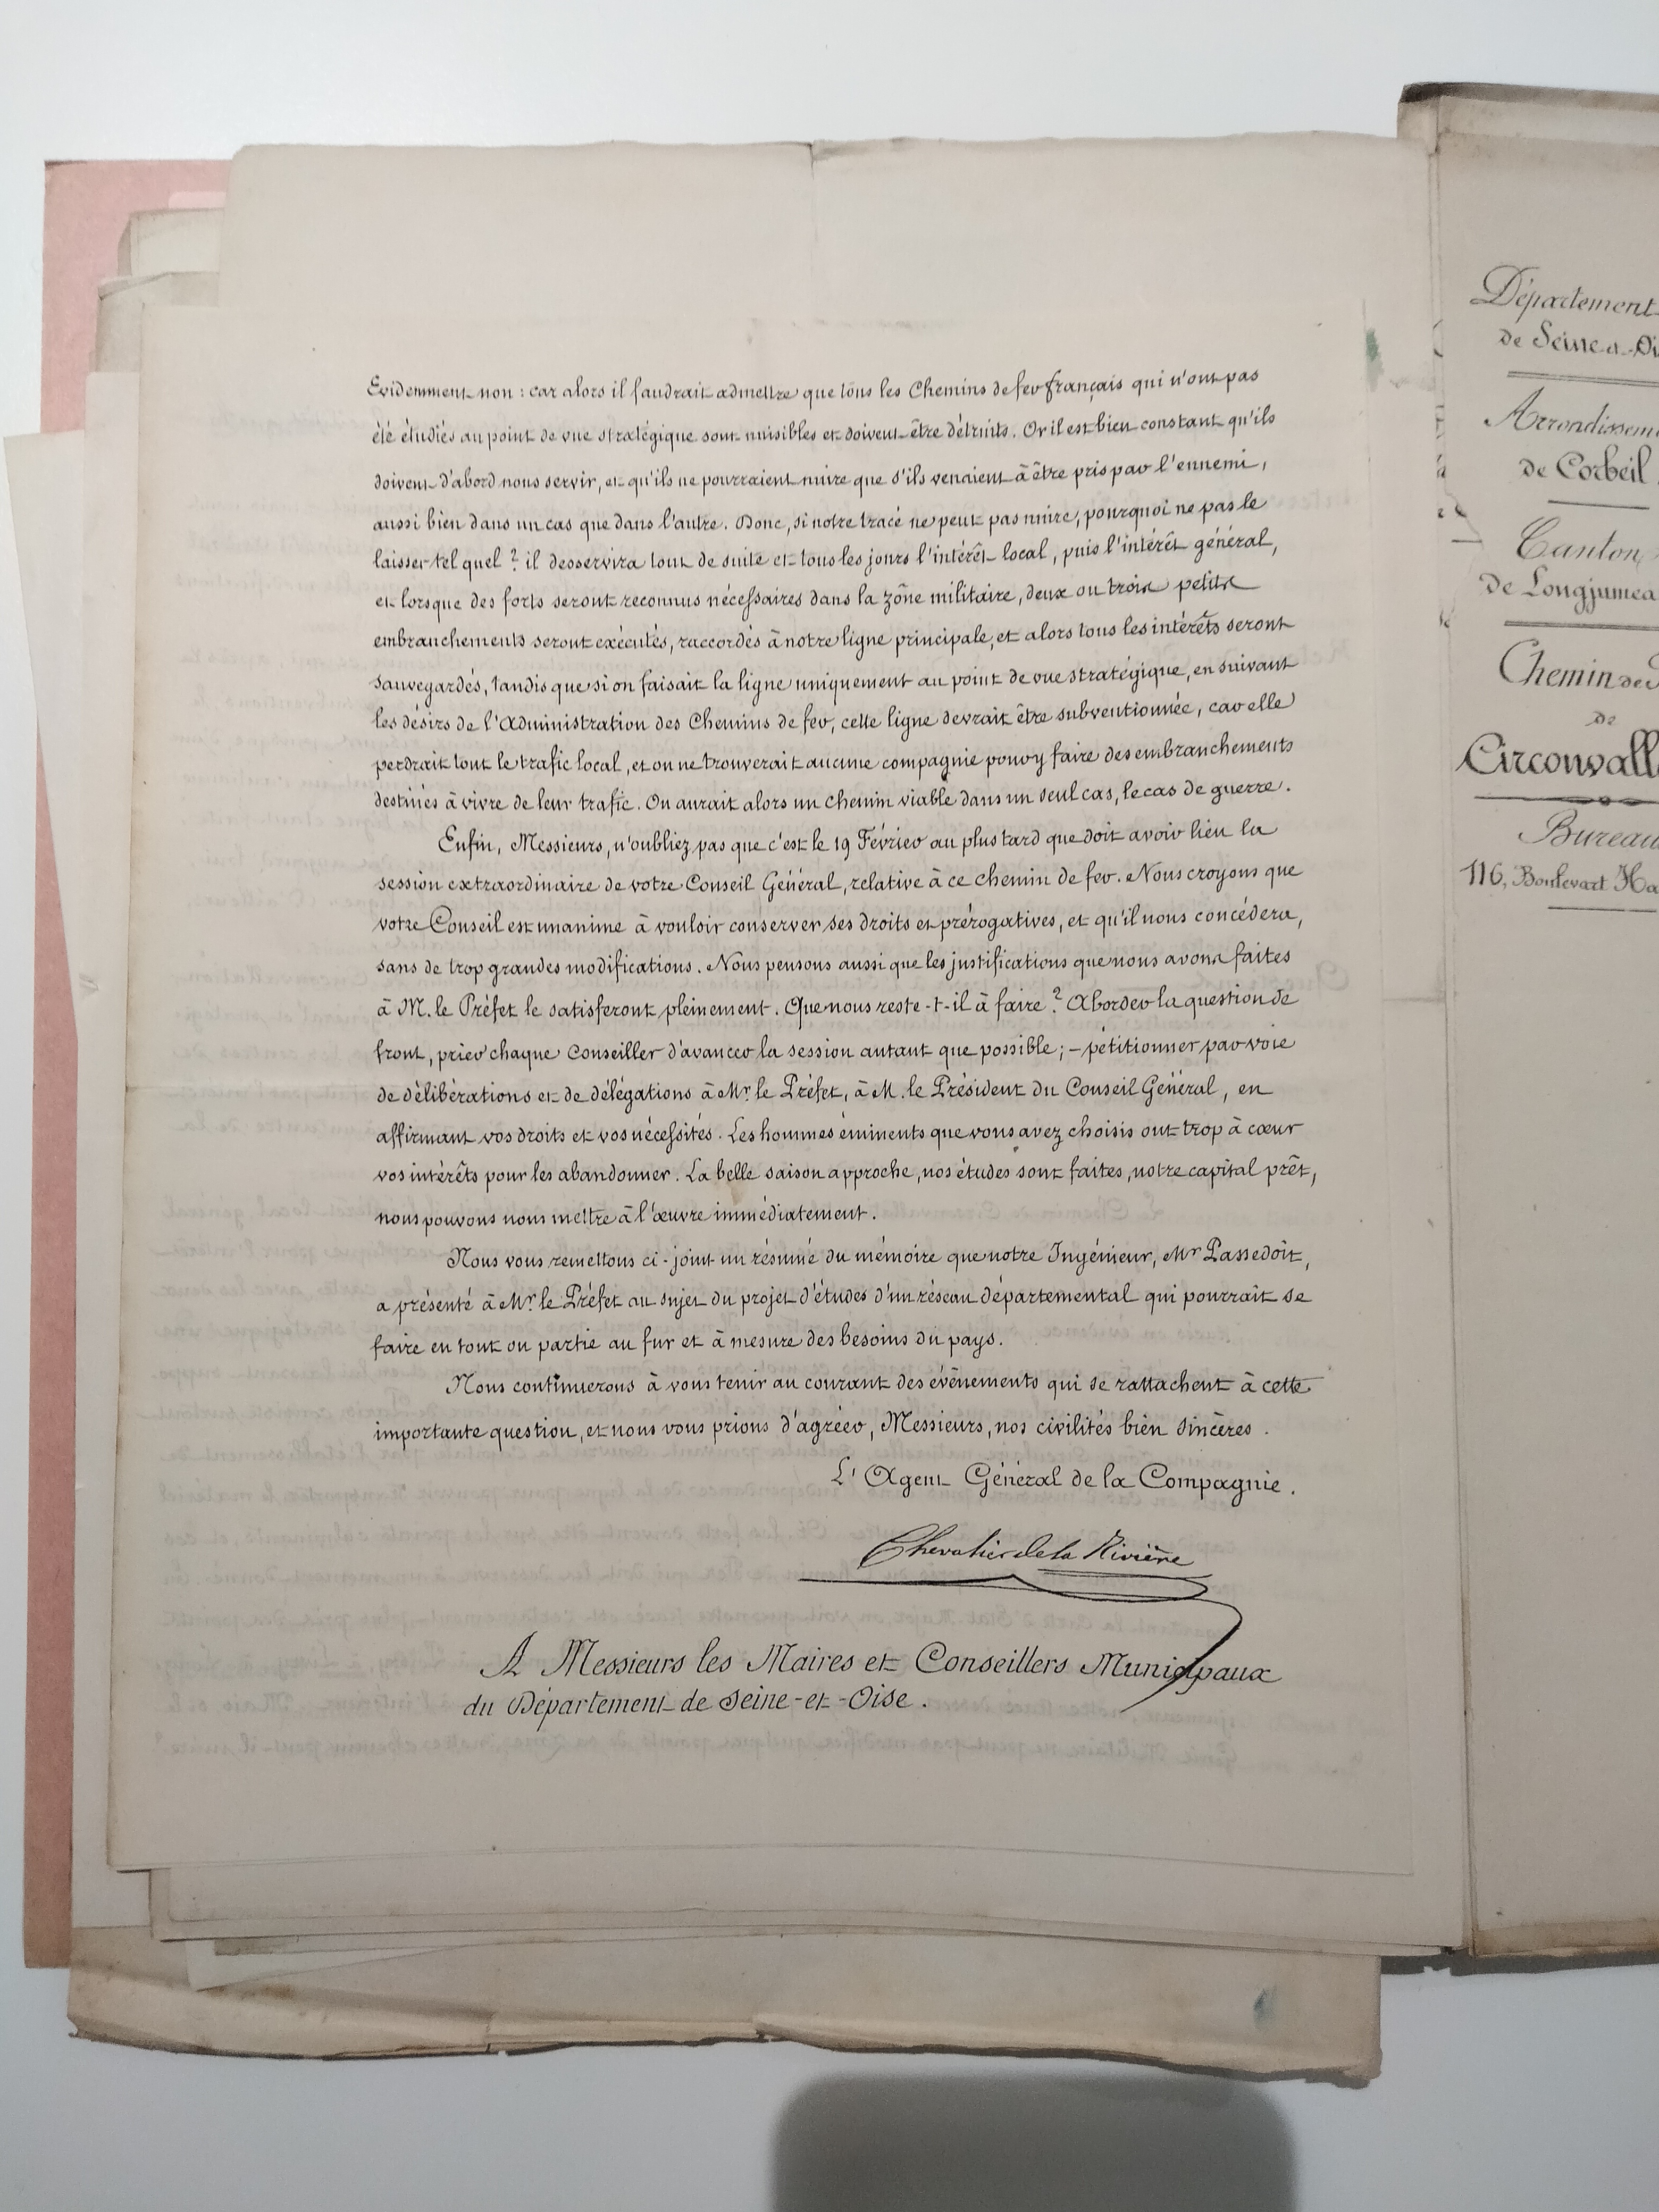 Evidemment non : car alors il faudrait admettre que tous les Chemins de fer français qui n'ont pas
été étudiés au point de vue stratégique sont nuisibles et doivent être détruits. Or il est bien constant qu'ils
doivent d'abord nous servir, et qu'ils ne pourraient nuire que s'ils venaient à être pris par l'ennemi,
aussi bien dans un cas que dans l'autre. Donc, si notre tracé ne peut pas nuire, pourquoi ne pas le
laisser tel quel ? il desservira tout de suite et tous les jours l'intérêt local, puis l'intérêt général,
et lorsque des forts seront reconnus nécessaires dans la zône militaire, deux ou trois petits
embranchements seront exécutés, raccordés à notre ligne principale, et alors tous les intérêts seront
sauvegardés, tandis que si on faisait la ligne uniquement au point de vue stratégique, en suivant
les désirs de l'Administration des Chemins de fer, cette ligne devrait être subventionnée, car elle
perdrait tout le trafic local, et on ne trouverait aucune compagnie pour y faire des embranchements
destinés à vivre de leur trafic. On aurait alors un chemin viable dans un seul cas, le cas de guerre.
Enfin, Messieurs, n'oubliez pas que c'est le 19 Février au plus tard que doit avoir lieu la
session extraordinaire de votre Conseil Général, relative à ce chemin de fer. Nous croyons que
votre Conseil est unanime à vouloir conserver ses droits et prérogatives, et qu'il nous concédera,
sans de trop grandes modifications. Nous pensons aussi que les justifications que nous avons faites
à M. le Préfet le satisferont pleinement. Que nous reste-t-il à faire ? Aborder la question de
front, prier chaque Conseiller d'avancer la session autant que possible ; – pétitionner par voie
de délibérations et de délégations à Mr. le Préfet, à M. le Président du Conseil Général, en
affirmant vos droits et vos nécessités. Les hommes éminents que vous avez choisis ont trop à cœur
vos intérêts pour les abandonner. La belle saison approche, nos études sont faites, notre capital prêt,
nous pouvons nous mettre à l'œuvre immédiatement.
Nous vous remettons ci-joint un résumé du mémoire que notre Ingénieur, Mr Passedoit,
a présenté à Mr. le Préfet au sujet du projet d'études d'un réseau départemental qui pourrait se
faire en tout ou partie au fur et à mesure des besoins du pays.
Nous continuerons à vous tenir au courant des évènements qui se rattachent à cette
importante question, et nous vous prions d'agréer, Messieurs, nos civilités bien sincères.
L'Agent Général de la Compagnie.
Chevalier de la Rivière
A Messieurs les Maires et Conseillers Municipaux
du Département de Seine-et-Oise.
Département
de Seine-et-Oi
Arrondissem
de Corbeil
Canton
de Longjumea
Chemin de
de
Circonvall
Bureau
116, Boulevart Ha